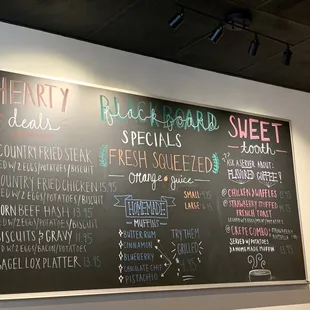 HEARTY
deals
COUNTRY FRIED STEAK
ED W/2 EGGS/POTATOES/BISCUIT
COUNTRY FRIED CHICKEN 13.95
ED W/2 EGGS/POTATOES/BISCUIT
CORN BEEF HASH 13.95
ED W/2 EGGS/POTATOES/BISCUIT
BISCUITS & GRAVY
W/2 EGGS/BACON/POTATOES
BAGEL LOX PLATTER 13
BLACKBOARD
SPECIALS
FRESH SQUEEZED
orange juice
SMALL
LARGE
HOMEMADE
MUFFINS
BUTTER RUM
CINNAMON
BLUEBERRY
CHOCOLATE CHIP
PISTACHIO
TRY THEM
GRILLED!
SWEET
tooth
ASK A SERVER ABOUT
FLAVORED
COFFEE!
CHICKEN & WAFFLES
STRAWBERRY STUFFED
FRENCH TOAST
CREPE COMBO
SERVED W/POTATOES
& HOMEMADE MUFFIN